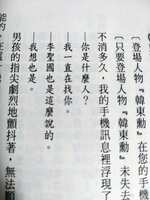 〔登場人物『韓東勳』在您的手機
〔只要登場人物『韓東勳』未失去
不消多久，我的手機訊息裡浮現了
—你是什麼人？
—我一直在找你。
—李聖國也是這麼說的。
—我想也是。
男孩的指尖劇烈地顫抖著，無法
能的